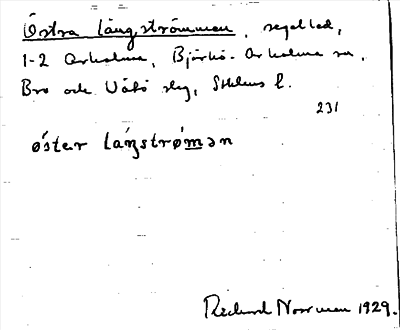 Östra Långströmmen, segelled,
1-2 Arholma, Björkö-Arholma sn,
Bro och Vätö slg, Sthlms l.
231
ǿster láŋstrø̀mən
Rickard Norrman 1929.